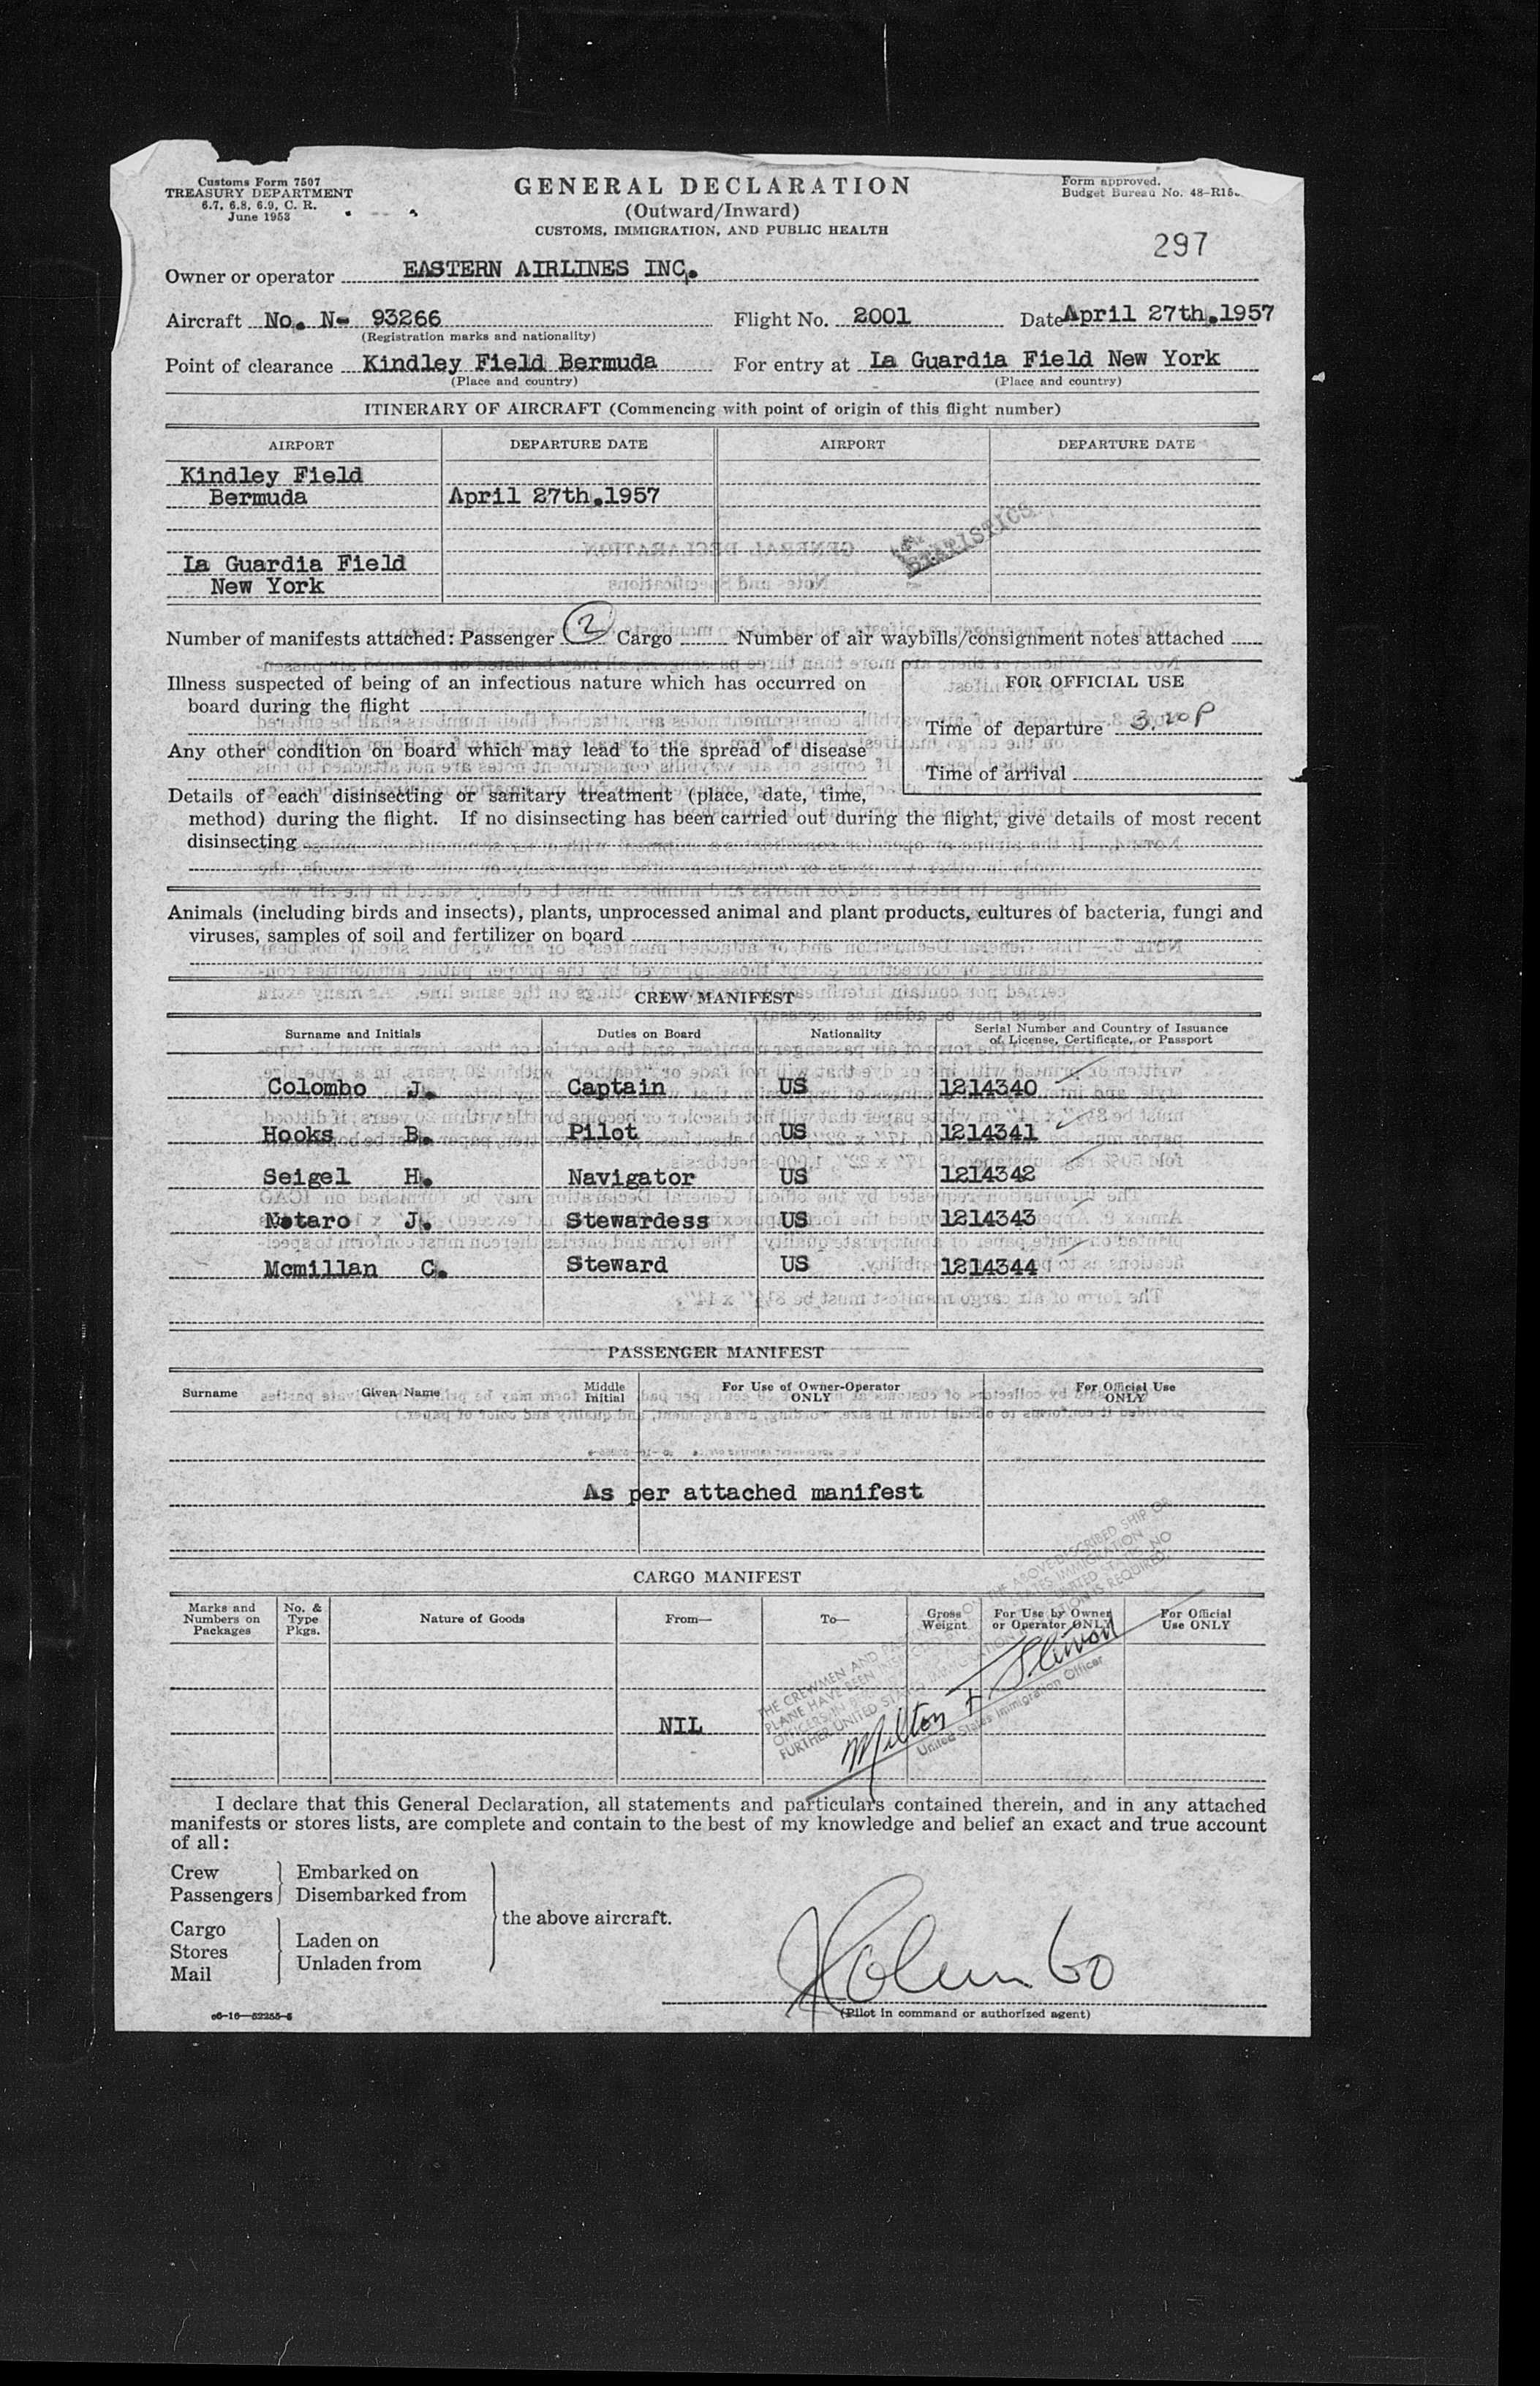 Customs Form 7507
TREASURY DEPARTMENT
6.7, 6.8, 6.9, C. R.
June 1953
GENERAL DECLARATION
(Outward/Inward)
CUSTOMS, IMMIGRATION, AND PUBLIC HEALTH
Form approved.
Budget Bureau No. 48-R15
297
Owner or operator EASTERN AIRLINES INC.
Aircraft No. N- 93266 Flight No. 2001 Date April 27th.1957
(Registration marks and nationality)
Point of clearance Kindley Field Bermuda For entry at La Guardia Field New York
(Place and country) (Place and country)
ITINERARY OF AIRCRAFT (Commencing with point of origin of this flight number)
AIRPORT DEPARTURE DATE AIRPORT DEPARTURE DATE
Kindley Field
Bermuda April 27th.1957
STATISTICS
La Guardia Field
New York
Number of manifests attached: Passenger 2 Cargo Number of air waybills/consignment notes attached
Illness suspected of being of an infectious nature which has occurred on
board during the flight
Any other condition on board which may lead to the spread of disease
FOR OFFICIAL USE
Time of departure 3.20P
Time of arrival
Details of each disinsecting or sanitary treatment (place, date, time,
method) during the flight. If no disinsecting has been carried out during the flight, give details of most recent
disinsecting
Animals (including birds and insects), plants, unprocessed animal and plant products, cultures of bacteria, fungi and
viruses, samples of soil and fertilizer on board
CREW MANIFEST
Surname and Initials Duties on Board Nationality Serial Number and Country of Issuance
of License, Certificate, or Passport
Colombo J. Captain US 1214340
Hooks B. Pilot US 1214341
Seigel H. Navigator US 1214342
Notaro J. Stewardess US 1214343
Mcmillan C. Steward US 1214344
PASSENGER MANIFEST
Surname Given Name Middle Initial For Use of Owner-Operator ONLY For Official Use ONLY
As per attached manifest
CARGO MANIFEST
Marks and Numbers on Packages No. & Type Pkgs. Nature of Goods From— To— Gross Weight For Use by Owner or Operator ONLY For Official Use ONLY
NIL
THE CREWMEN AND THE ABOVE DESCRIBED SHIP OR
PLANE HAVE BEEN STATES IMMIGRATION
OFFICERS UNITED STATES. NO
FURTHER UNITED STATES IMMIGRATION IS REQUIRED.
Milton
United States Immigration Officer
I declare that this General Declaration, all statements and particulars contained therein, and in any attached
manifests or stores lists, are complete and contain to the best of my knowledge and belief an exact and true account
of all:
Crew
Passengers
Embarked on
Disembarked from
Cargo
Stores
Mail
Laden on
Unladen from
the above aircraft.
J Colombo
(Pilot in command or authorized agent)
c6-16—52255-5